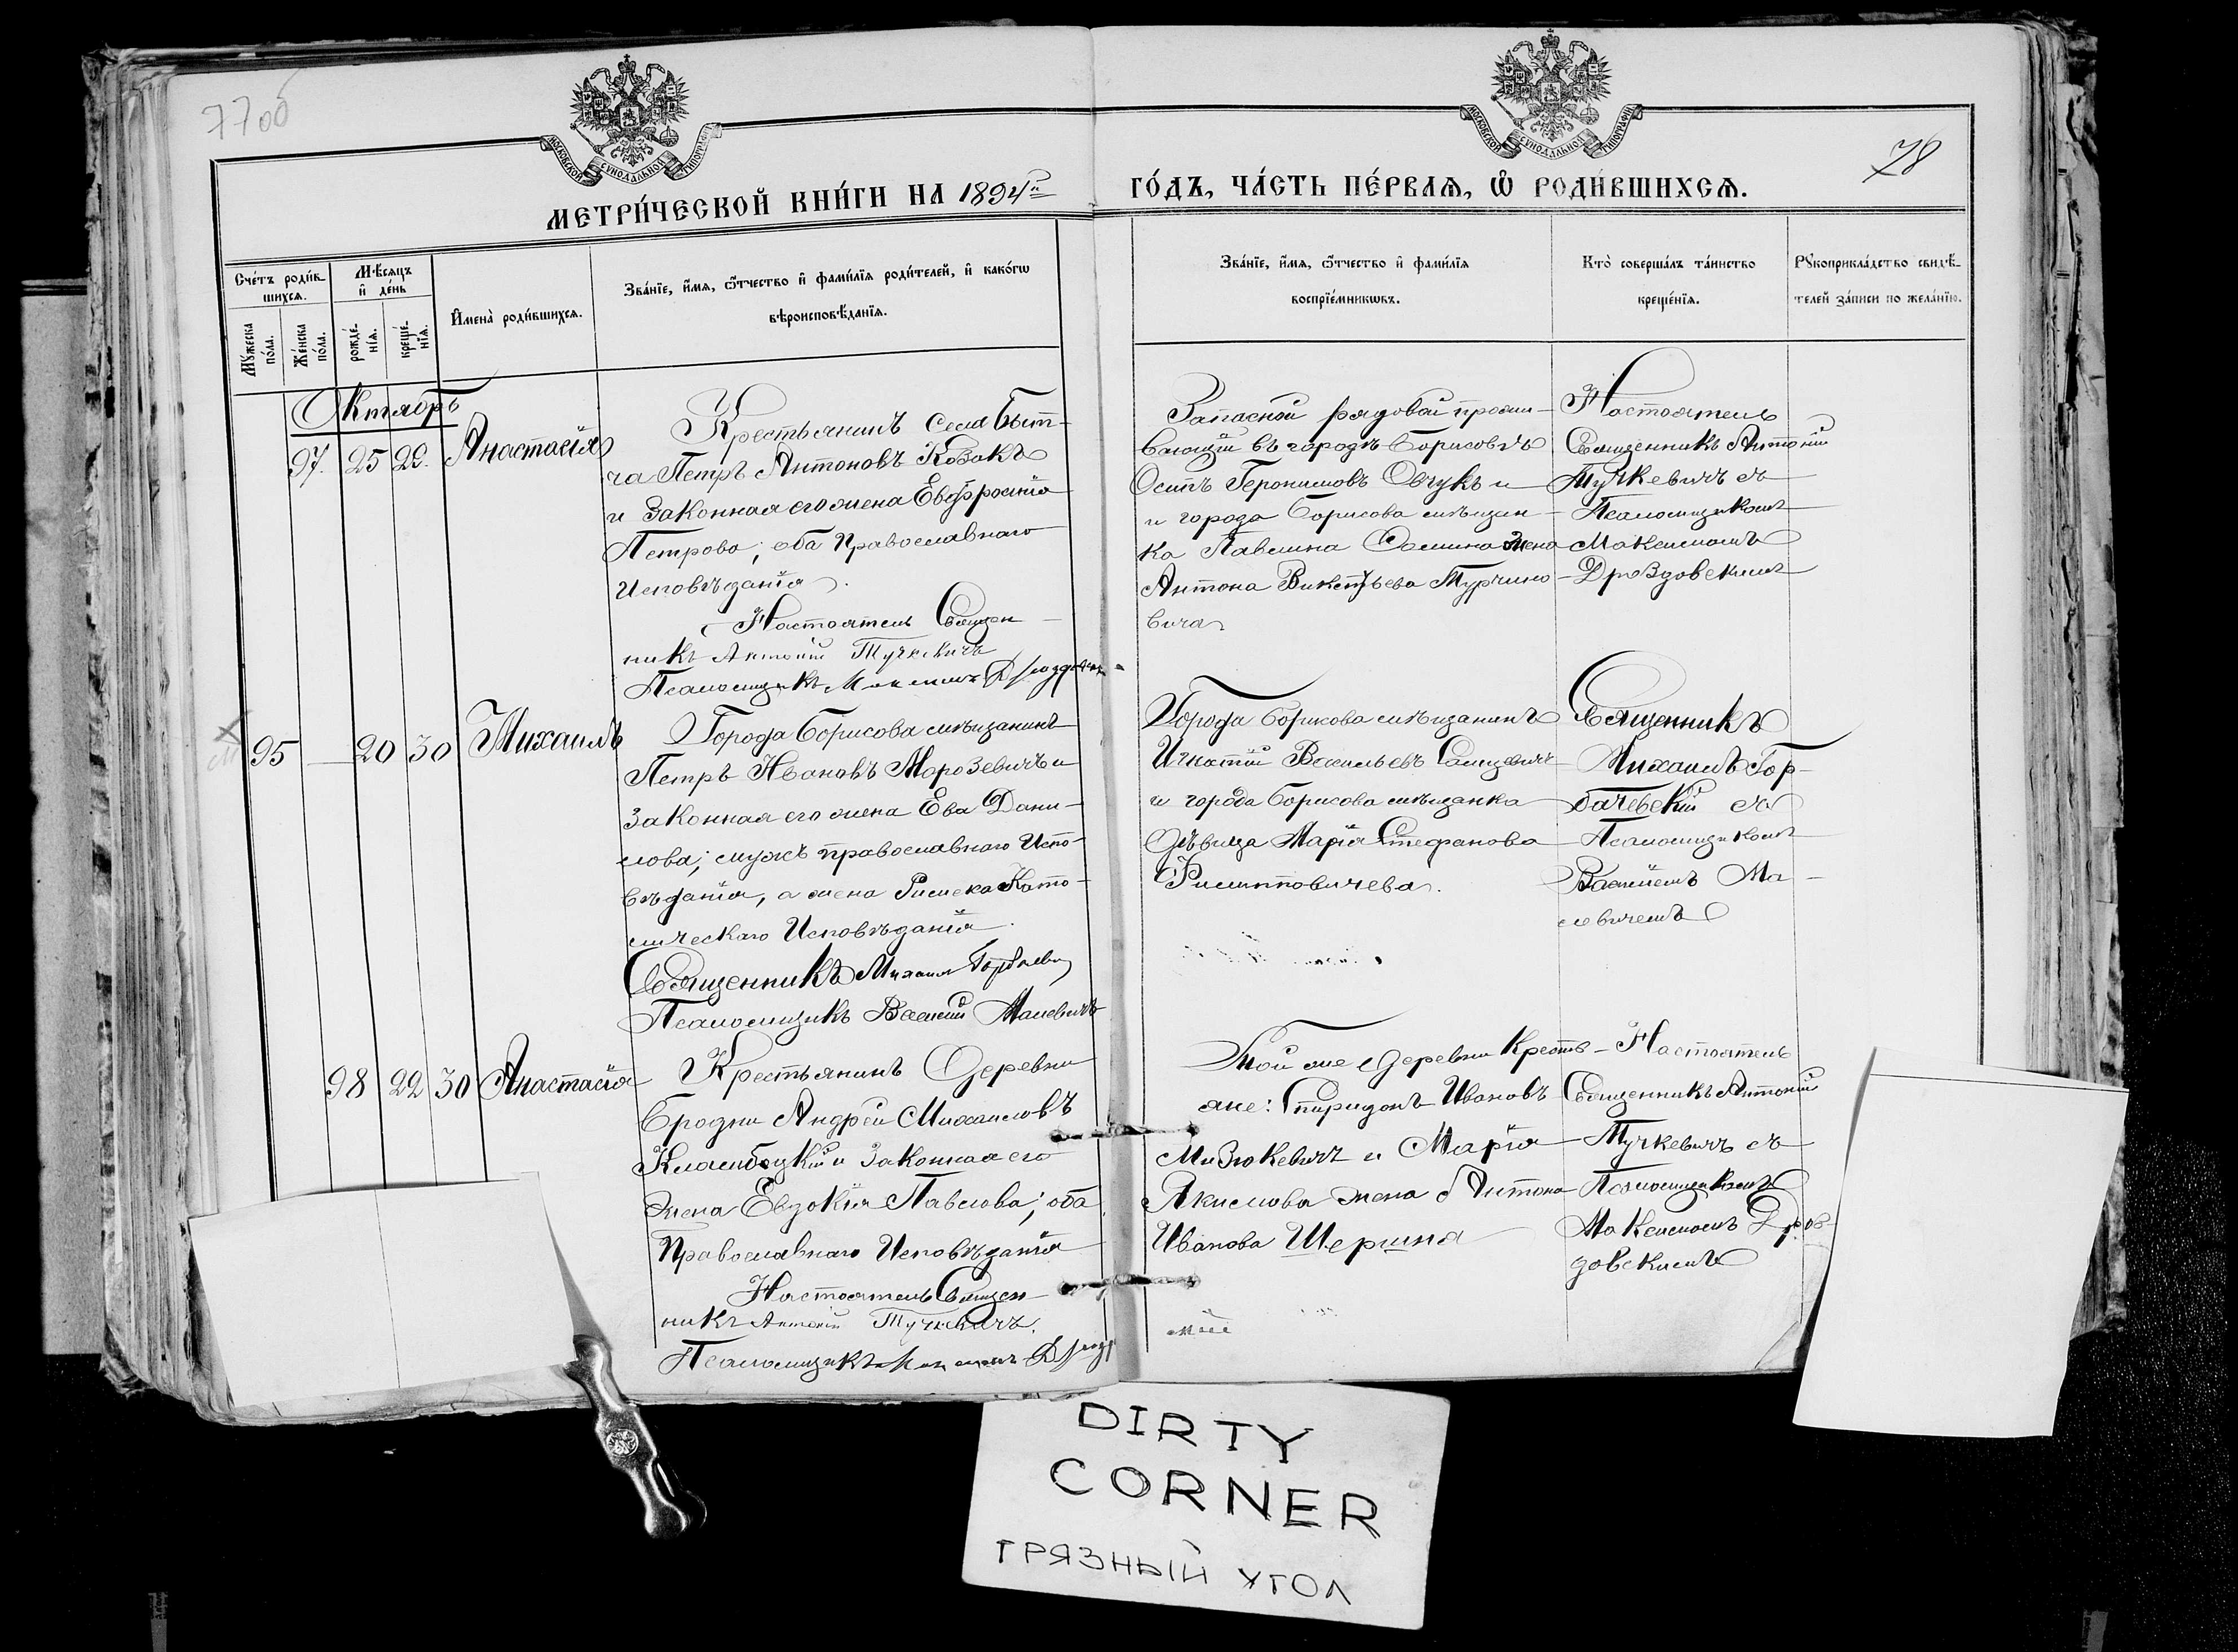 77об
МОСКОВСКОЙ СѴНОДАЛЬНОЙ ТИПОГРАФІИ
МОСКОВСКОЙ СѴНОДАЛЬНОЙ ТИПОГРАФІИ
78
МЕТРИ́ЧЕСКОЙ КНИ́ГИ НА 1894й
ГО́ДЪ, ЧА́СТЬ ПЕ́РВАѦ, Ѽ РОДИ́ВШИХСѦ.
Сче́тъ роди́в-
шихсѧ.
Мꙋ́жеска по́ла.
Же́нска по́ла.
Мѣ́сѧцъ
и҆ де́нь
рожде́-
нїѧ.
креще́-
нїѧ.
И҆мена̀ роди́вшихсѧ.
Зва́нїе, и҆́мѧ, ѻ҆́тчество и҆ фами́лїѧ роди́телей, и҆ како́гѡ
вѣроисповѣ́данїѧ.
Зва́нїе, и҆́мѧ, ѻ҆́тчество и҆ фами́лїѧ
воспрїе́мникѡвъ.
Кто̀ соверша́лъ та́инство
креще́нїѧ.
Рꙋкоприкла́дство свидѣ́-
телей за́писи по жела́нїю.
Октябрь
97. 25 29. Анастасія
Крестьянинъ села Быт-
ча Петръ Антоновъ Козакъ
и законная его жена Евфросинія
Петрова; оба Православнаго
Исповѣданія.
Настоятель Священ-
никъ Антоній Тучкевичъ
Псаломщикъ Максимъ Дроздовскій
Запасной рядовой прожи-
вающій въ городѣ Борисовѣ
Осипъ Геронимовъ Овчукъ и
и города Борисова мѣщан-
ка Павлина Фомина жена
Антона Викентьева Турчино-
вича
Настоятель
Священникъ Антоній
Тучкевичъ съ
Псаломщикомъ
Максимомъ
Дроздовскимъ
95 20 30 Михаилъ
Города Борисова мѣщанинъ
Петръ Ивановъ Морозевичъ и
законная его жена Ева Дани-
лова; мужъ православнаго Испо-
вѣданія, а жена Римско Като-
лическаго Исповѣданія.
Священникъ Михаилъ Горбачевскій
Псаломщикъ Василій Малевичъ
Города Борисова мѣщанинъ
Игнатій Васильевъ
и города Борисова мѣщанка
дѣвица Марія Стефанова
Филипповичева.
Священникъ
Михаилъ Гор-
бачевскій съ
Псаломщикомъ
Василіемъ Ма-
левичемъ
98 22 30 Анастасія
Крестьянинъ Деревни
Бродни Андрей Михаиловъ
и законная его
жена Евдокія Павлова; оба
Православнаго Исповѣданія
Настоятель Священ-
никъ Антоній Тучкевичъ.
Псаломщикъ Максимъ Дрозд
Той же деревни Кресть-
яне: Спиридонъ Ивановъ
Мизюкевичъ и Марія
Якимова жена Антона
Иванова Шершня
Настоятель
Священникъ Антоній
Тучкевичъ съ
Псаломщикомъ
Максимомъ Дроз-
довскимъ
DIRTY
CORNER
ГРЯЗНЫЙ УГОЛ